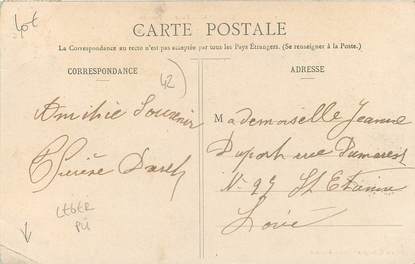 Lot
CARTE POSTALE
La Correspondance au recto n'est pas acceptée par tous les Pays Étrangers. (Se renseigner à la Poste.)
CORRESPONDANCE
42
ADRESSE
Amitié Souvenir
Mademoiselle Jeanne
Duport rue Dumarest
N. 27 St Etienne
Loire
LEGER
PLI